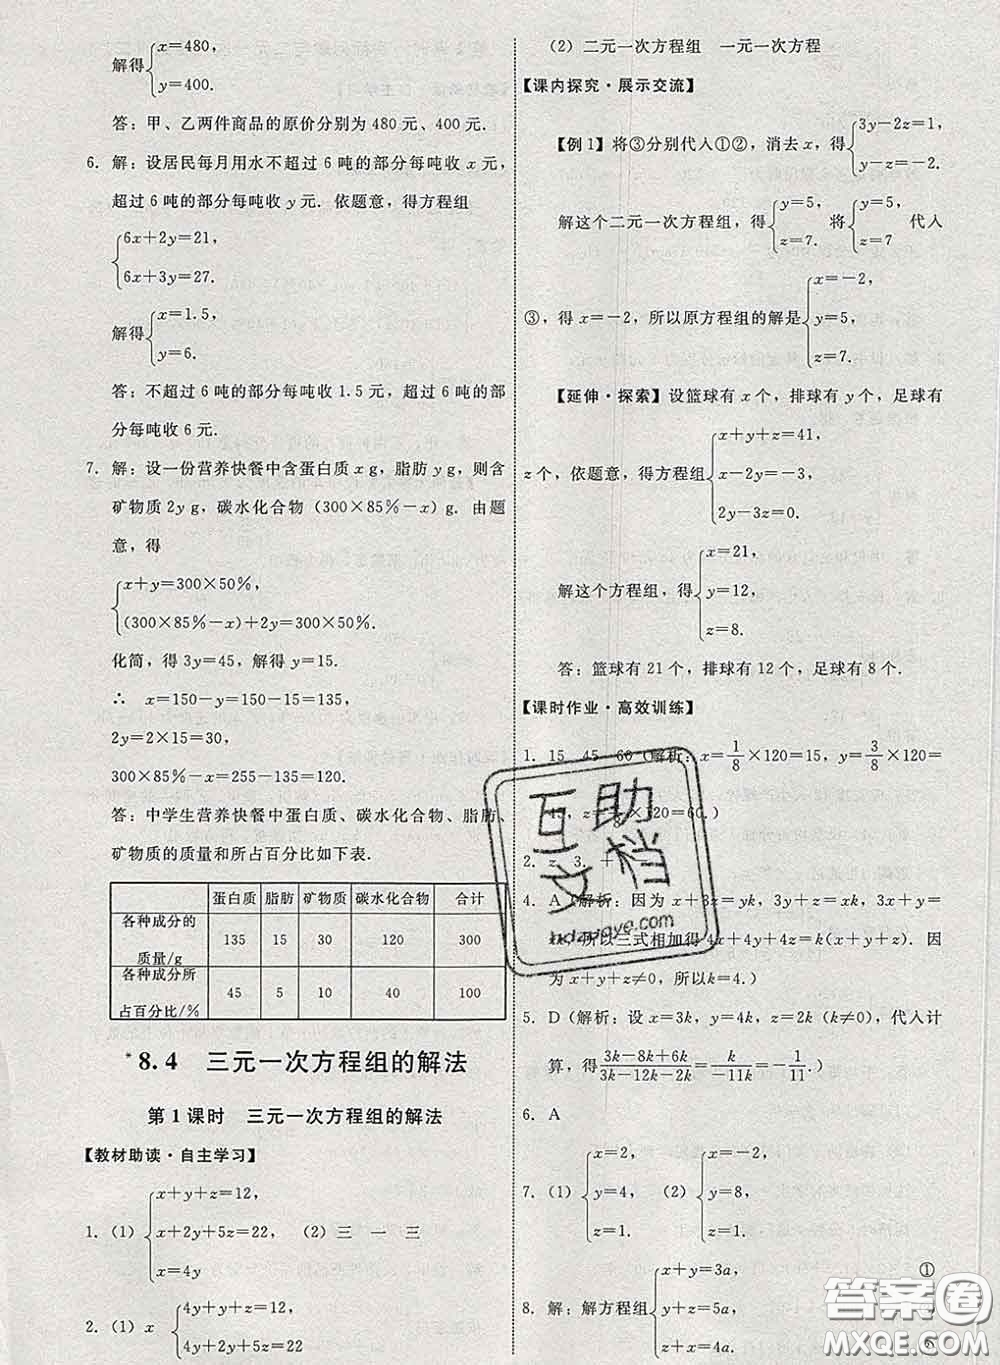 解得{x=480,
y=400.
答：甲、乙两件商品的原价分别为 480 元、400 元.
6. 解：设居民每月用水不超过 6 吨的部分每吨收 x 元，
超过 6 吨的部分每吨收 y 元. 依题意，得方程组
{6x+2y=21,
6x+3y=27.
解得{x=1.5,
y=6.
答：不超过 6 吨的部分每吨收 1.5 元，超过 6 吨的部
分每吨收 6 元.
7. 解：设一份营养快餐中含蛋白质 x g，脂肪 y g，则含
矿物质 2y g，碳水化合物 (300×85%−x) g. 由题
意，得
{x+y=300×50%,
(300×85%−x)+2y=300×50%.
化简，得 3y=45，解得 y=15.
∴ x=150−y=150−15=135,
2y=2×15=30,
300×85%−x=255−135=120.
答：中学生营养快餐中蛋白质、碳水化合物、脂肪、
矿物质的质量和所占百分比如下表.
蛋白质 脂肪 矿物质 碳水化合物 合计
各种成分的质量/g 135 15 30 120 300
各种成分所占百分比/% 45 5 10 40 100
*8.4 三元一次方程组的解法
第 1 课时 三元一次方程组的解法
【教材助读·自主学习】
1. (1) {x+y+z=12,
x+2y+5z=22, (2) 三 一 三
x=4y
2. (1) x {4y+y+z=12,
4y+2y+5z=22
(2) 二元一次方程组 一元一次方程
【课内探究·展示交流】
【例 1】将③分别代入①②，消去 x，得{3y−2z=1,
y−z=−2.
解这个二元一次方程组，得{y=5, z=7. 将{y=5, z=7 代入
③，得 x=−2，所以原方程组的解是{x=−2,
y=5,
z=7.
【延伸·探索】设篮球有 x 个，排球有 y 个，足球有
z 个，依题意，得方程组{x+y+z=41,
x−2y=−3,
2y−3z=0.
解这个方程组，得{x=21,
y=12,
z=8.
答：篮球有 21 个，排球有 12 个，足球有 8 个.
【课时作业·高效训练】
1. 15 45 60 (解析：x=1/8×120=15，y=3/8×120=
×120=60.)
2. z 3.
4. A (解析：因为 x+3z=yk，3y+z=xk，3x+y=
zk，所以三式相加得 4x+4y+4z=k(x+y+z). 因
为 x+y+z≠0，所以 k=4.)
5. D (解析：设 x=3k，y=4k，z=2k (k≠0)，代入计
算，得 (3k−8k+6k)/(3k−12k−2k)=k/(−11k)=−1/11.)
6. A
7. (1) {x=2, y=4, z=1. (2) {x=2, y=8, z=1.
8. 解：解方程组{x+y=3a, ①
y+z=5a,
z+x=4a.
互助文档
hdzuoye.com
答案圈
MXQE.COM